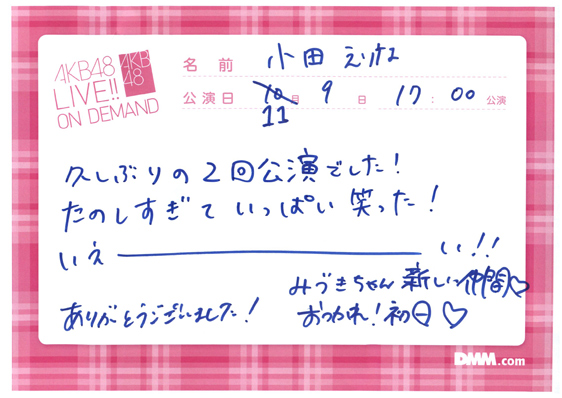 AKB48
LIVE!!
ON DEMAND
AKB
48
名前 小田 えりな
公演日 10月 9日 17:00 公演
11
久しぶりの2回公演でした!
たのしすぎて いっぱい 笑った!
いえ――――――い!!
みづきちゃん 新しい仲間♡
ありがとうございました! おつかれ!初日♡
DMM.com